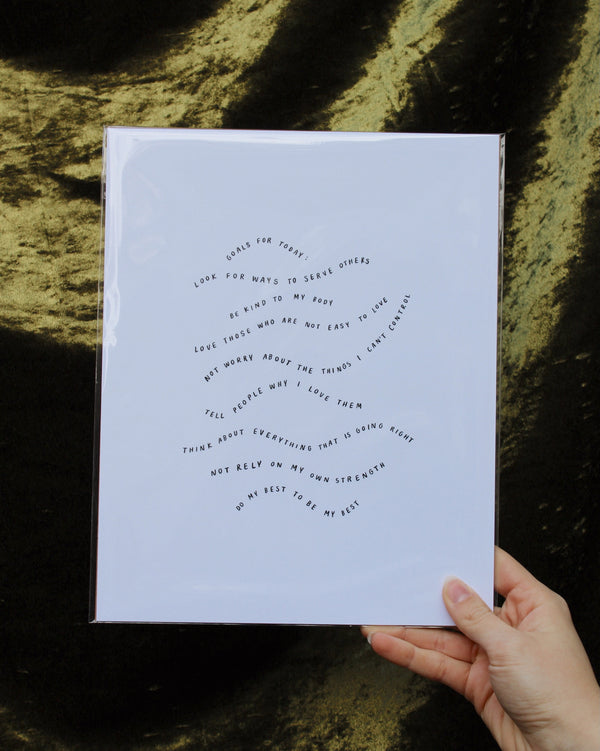 GOALS FOR TODAY:
LOOK FOR WAYS TO SERVE OTHERS
BE KIND TO MY BODY
LOVE THOSE WHO ARE NOT EASY TO LOVE
NOT WORRY ABOUT THE THINGS I CAN'T CONTROL
TELL PEOPLE WHY I LOVE THEM
THINK ABOUT EVERYTHING THAT IS GOING RIGHT
NOT RELY ON MY OWN STRENGTH
DO MY BEST TO BE MY BEST